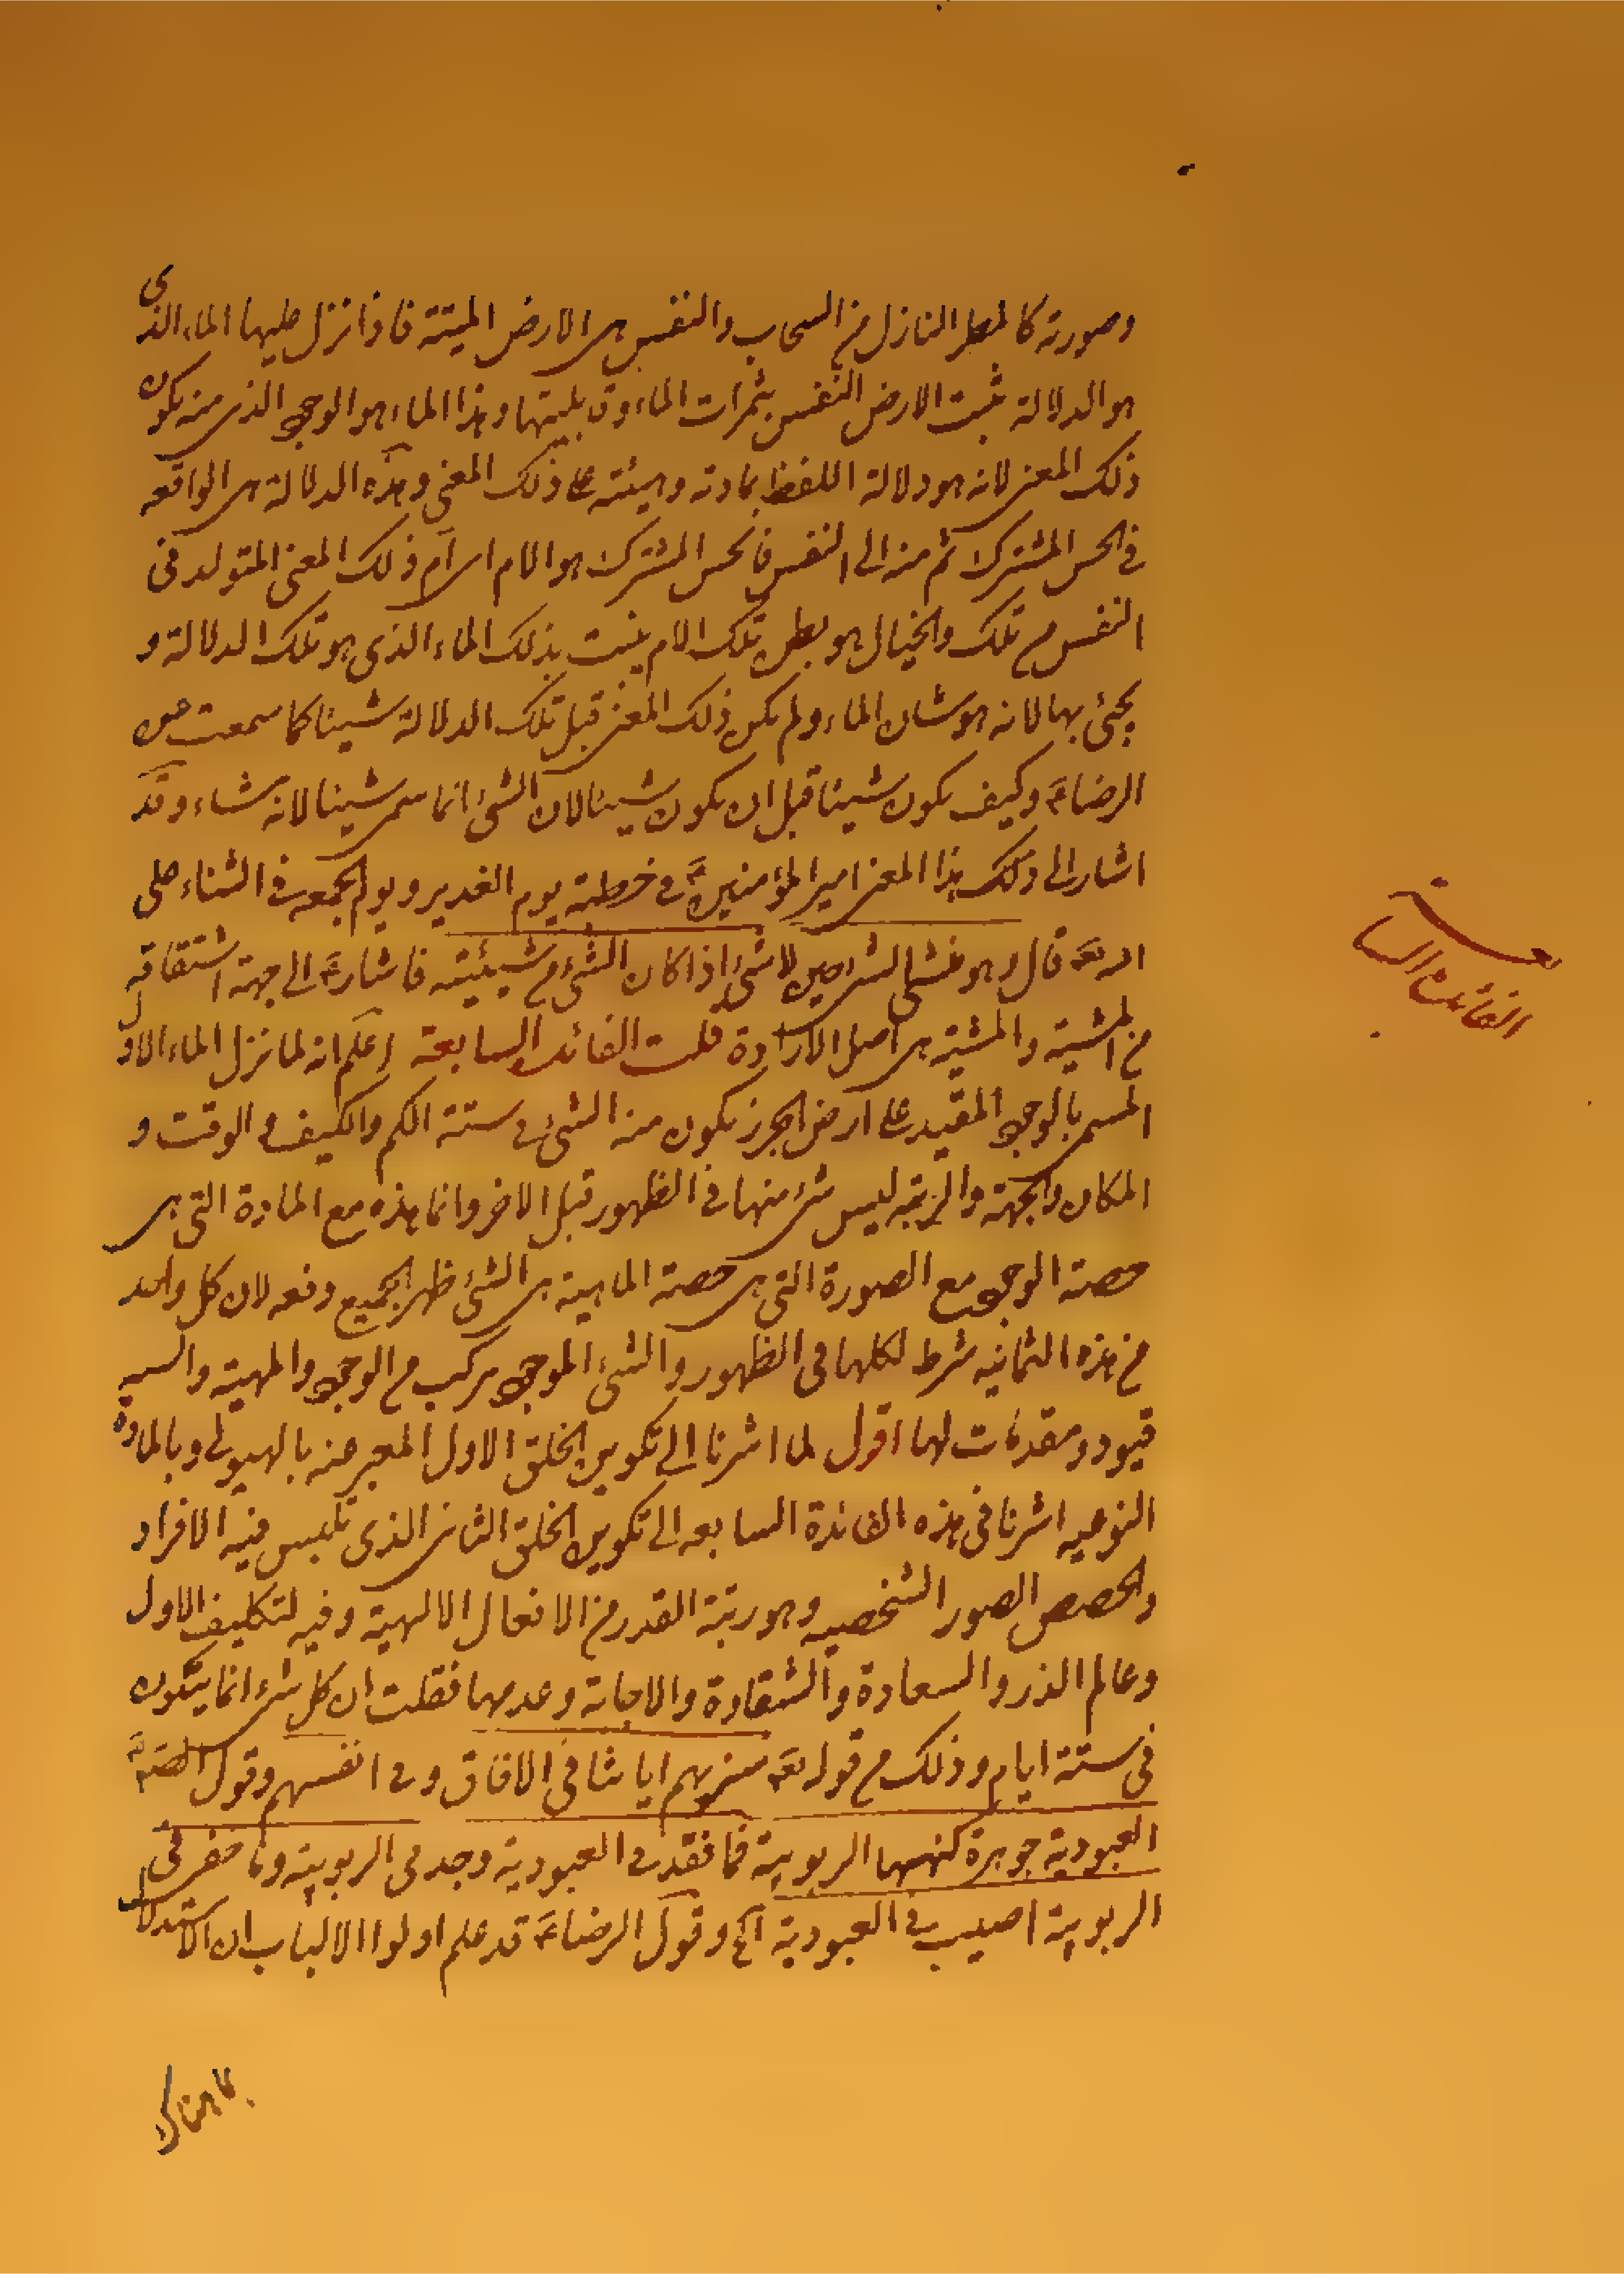 وصورته كالمطر النازل من السحاب والنفس هي الارض الميتة فاذا نزل عليها الماء الذي
هو الدلالة نبت الارض النفس بثمرات الماء وقابليتها وهذا الماء هو الوجود الذي منه يكون
ذلك المعنى لانه هو دلالة اللفظ بمادته وهيئته على ذلك المعنى وهذه الدلالة هي الواقعه
في الحس المشترك ثم منه الى النفس فالحس المشترك هو الام اي ام ذلك المعنى المتولد في
النفس من تلك والخيال هو بطن تلك الام ينبت بذلك الماء الذي هو تلك الدلالة و
يحيى بها لانه هو شان الماء ولم يكن ذلك المعنى قبل تلك الدلالة شيئا كما سمعت من
الرضاء وكيف يكون شيئا قبل ان يكون شيئا لان الشئ انما سمي شيئا لانه شاء وقد
اشار الى ذلك هذا المعنى امير المؤمنين في خطبة يوم الغدير ويوم الجمعه في الثناء على
الله تعه قال وهو منشئ الشئ حين لا شئ اذا كان الشئ من شيئيته فاشار الى جهة اشتقاقه
من المشية والمشية هي اصل الارادة قلت الفائدة السابعة اعلم انه لما نزل الماء الاول
المسمى بالوجود المقيد على ارض الجرز تكون منه الشئ في ستة الكم والكيف والوقت و
المكان والجهة والرتبه ليس شئ منها في الظهور قبل الاخر وانما هذه مع المادة التي هي
حصة الوجود مع الصورة التي هي حصة الماهية هي الشئ ظهر الجميع دفعه لان كل واحد
من هذه الثمانيه شرط لكلها في الظهور والشئ الموجود مركب من الوجود والمهية والسته
قيود ومقدمات لها اقول لما اشرنا الى تكوين الخلق الاول المعبر عنه بالهيولى وبالمادة
النوعيه اشرنا في هذه الفائدة السابعه الى تكوين الخلق الثاني الذي تلبس فيه الافراد
والحصص الصور الشخصيه وهو رتبة القدر من الافعال الالهية وفيه لتكليف الاول
وعالم الذر والسعادة والشقاوة والاجابة وعدمها فقلت ان كل شئ انما يتكون
في ستة ايام وذلك من قوله تعه سنريهم اياتنا في الافاق وفي انفسهم وقول الصه
العبودية جوهرة كنهها الربوبية فما فقد في العبودية وجد في الربوبية وما خفي في
الربوبية اصيب في العبودية آلخ وقول الرضاء قد علم اولوا الالباب ان الاستدلال
على ما هناك
الفائدة السا
بعة